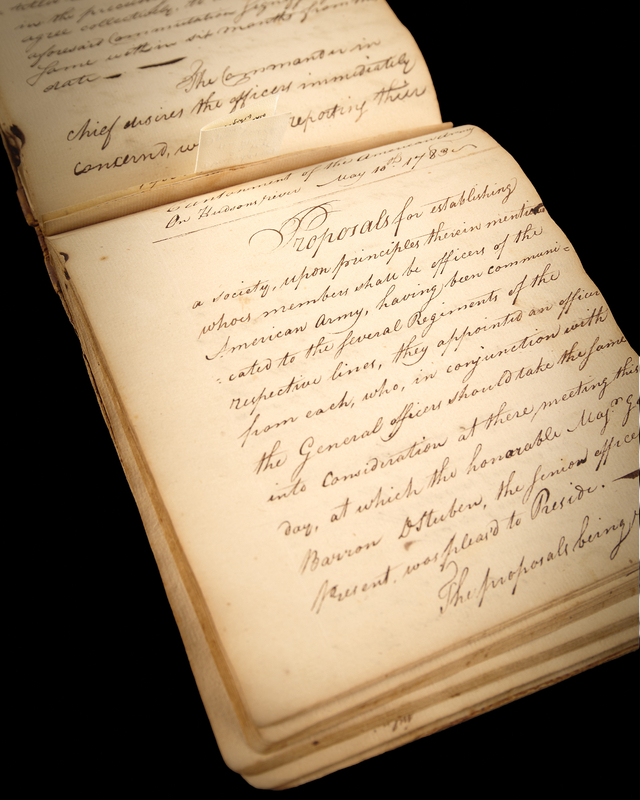 in the presence
agree collectively, to
aforesaid Commutation signify
same within six months from the
date —
The Commander in
chief desires the officers immediately
concerned, w reporting their
Cantonment of the American Army
On Hudsons river May 10th 1783
Proposals for establishing
a society, upon principles therein mention
whoes members shall be officers of the
American Army, having been communi-
:cated to the several Regiments of the
respective lines, they appointed an officer
from each, who, in conjunction with
the General officers should take the same
into Consideration at there, meeting this
day, at which the honorable Majr. Ge
Barron DStuben, the senior office
Present, was pleasd to Preside. —
The proposals being